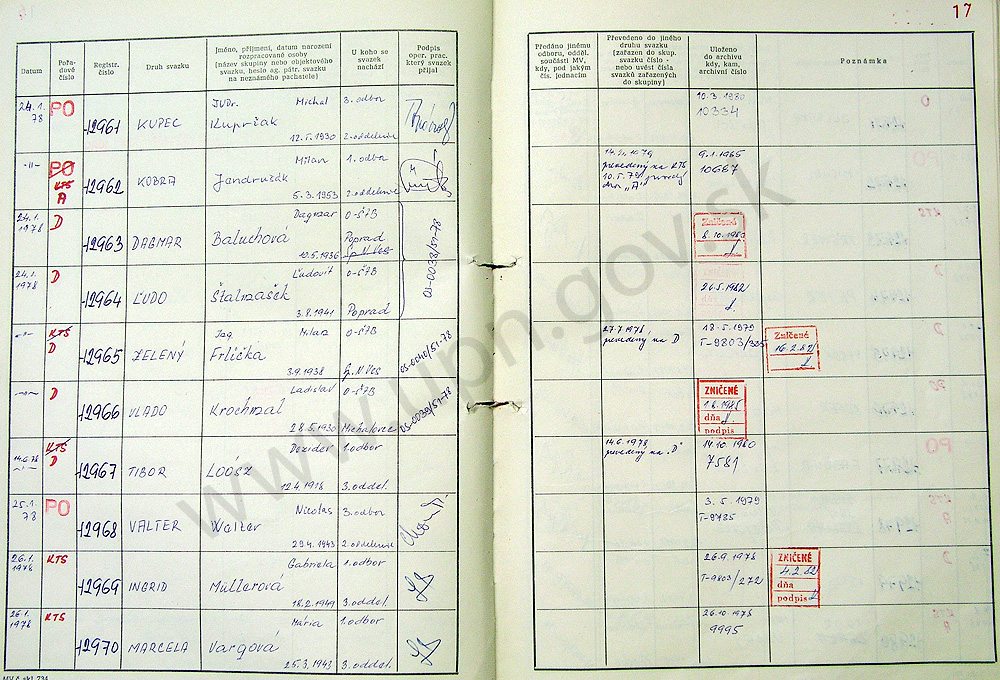 17
Datum
Pořa-
dové
číslo
Registr.
číslo
Druh svazku
Jméno, příjmení, datum narození
rozpracované osoby
(název skupiny nebo objektového
svazku, heslo ag. pátr. svazku
na neznámého pachatele)
U koho se
svazek
nachází
Podpis
oper. prac.
který svazek
přijal
Předáno jinému
odboru, odděl.
součásti MV,
kdy, pod jakým
čís. jednacím
Převedeno do jiného
druhu svazku
(zařazen do skup.
svazku číslo -
nebo uvést čísla
svazků zařazených
do skupiny)
Uloženo
do archivu
kdy, kam,
archivní číslo
Poznámka
24.1.
78
PO
12961
KUPEC
JUDr. Michal
Kuprčak
12.5.1930
3. odbor
2. oddelenie
10.3.1980
10334
-"-
PO
KTS
A
12962
KOBRA
Milan
Jendrušák
5.3.1953
1. odbor
2. oddelenie
prevedený na KTS
10687
24.1.
1978
D
12963
DAGMAR
Dagmar
Baluchová
10.5.1936
O-ŠTB
Poprad
Sp. N. Ves
OS-0038/51-78
Zničené
8.10.1980
24.1.
1978
D
12964
ĽUDO
Ľudovít
3.8.1941
O-ŠTB
Poprad
26.5.1982
KTS
D
12965
ZELENÝ
Ing. Milan
Frlička
3.9.1938
O-ŠTB
Sp. N. Ves
OS-0040/51-78
27.7.1978,
prevedený na D
18.5.1979
T-9803/335
Zničené
16.2.82
D
12966
VLADO
Ladislav
Krochmal
28.5.1930
O-ŠTB
Michalovce
OS-0039/51-78
ZNIČENÉ
dňa
podpis
KTS
D
12967
TIBOR
Dezider
Loósz
12.4.1918
1. odbor
3. oddel.
14.6.1978
prevedený na "D"
14.10.1980
7581
25.1.
78
PO
12968
VALTER
Nicolas
Walter
29.4.1943
3. odbor
2. oddelenie
3.5.1979
T-9785
26.1.
1978
KTS
12969
INGRID
Gabriela
Müllerová
18.2.1949
1. odbor
3. oddel.
26.9.1978
T-9803/272
ZNIČENÉ
4.2.82
dňa
podpis
26.1.
1978
KTS
12970
MARCELA
Mária
Vargová
25.3.1943
1. odbor
3. oddel.
26.10.1978
9995
www.upn.gov.sk